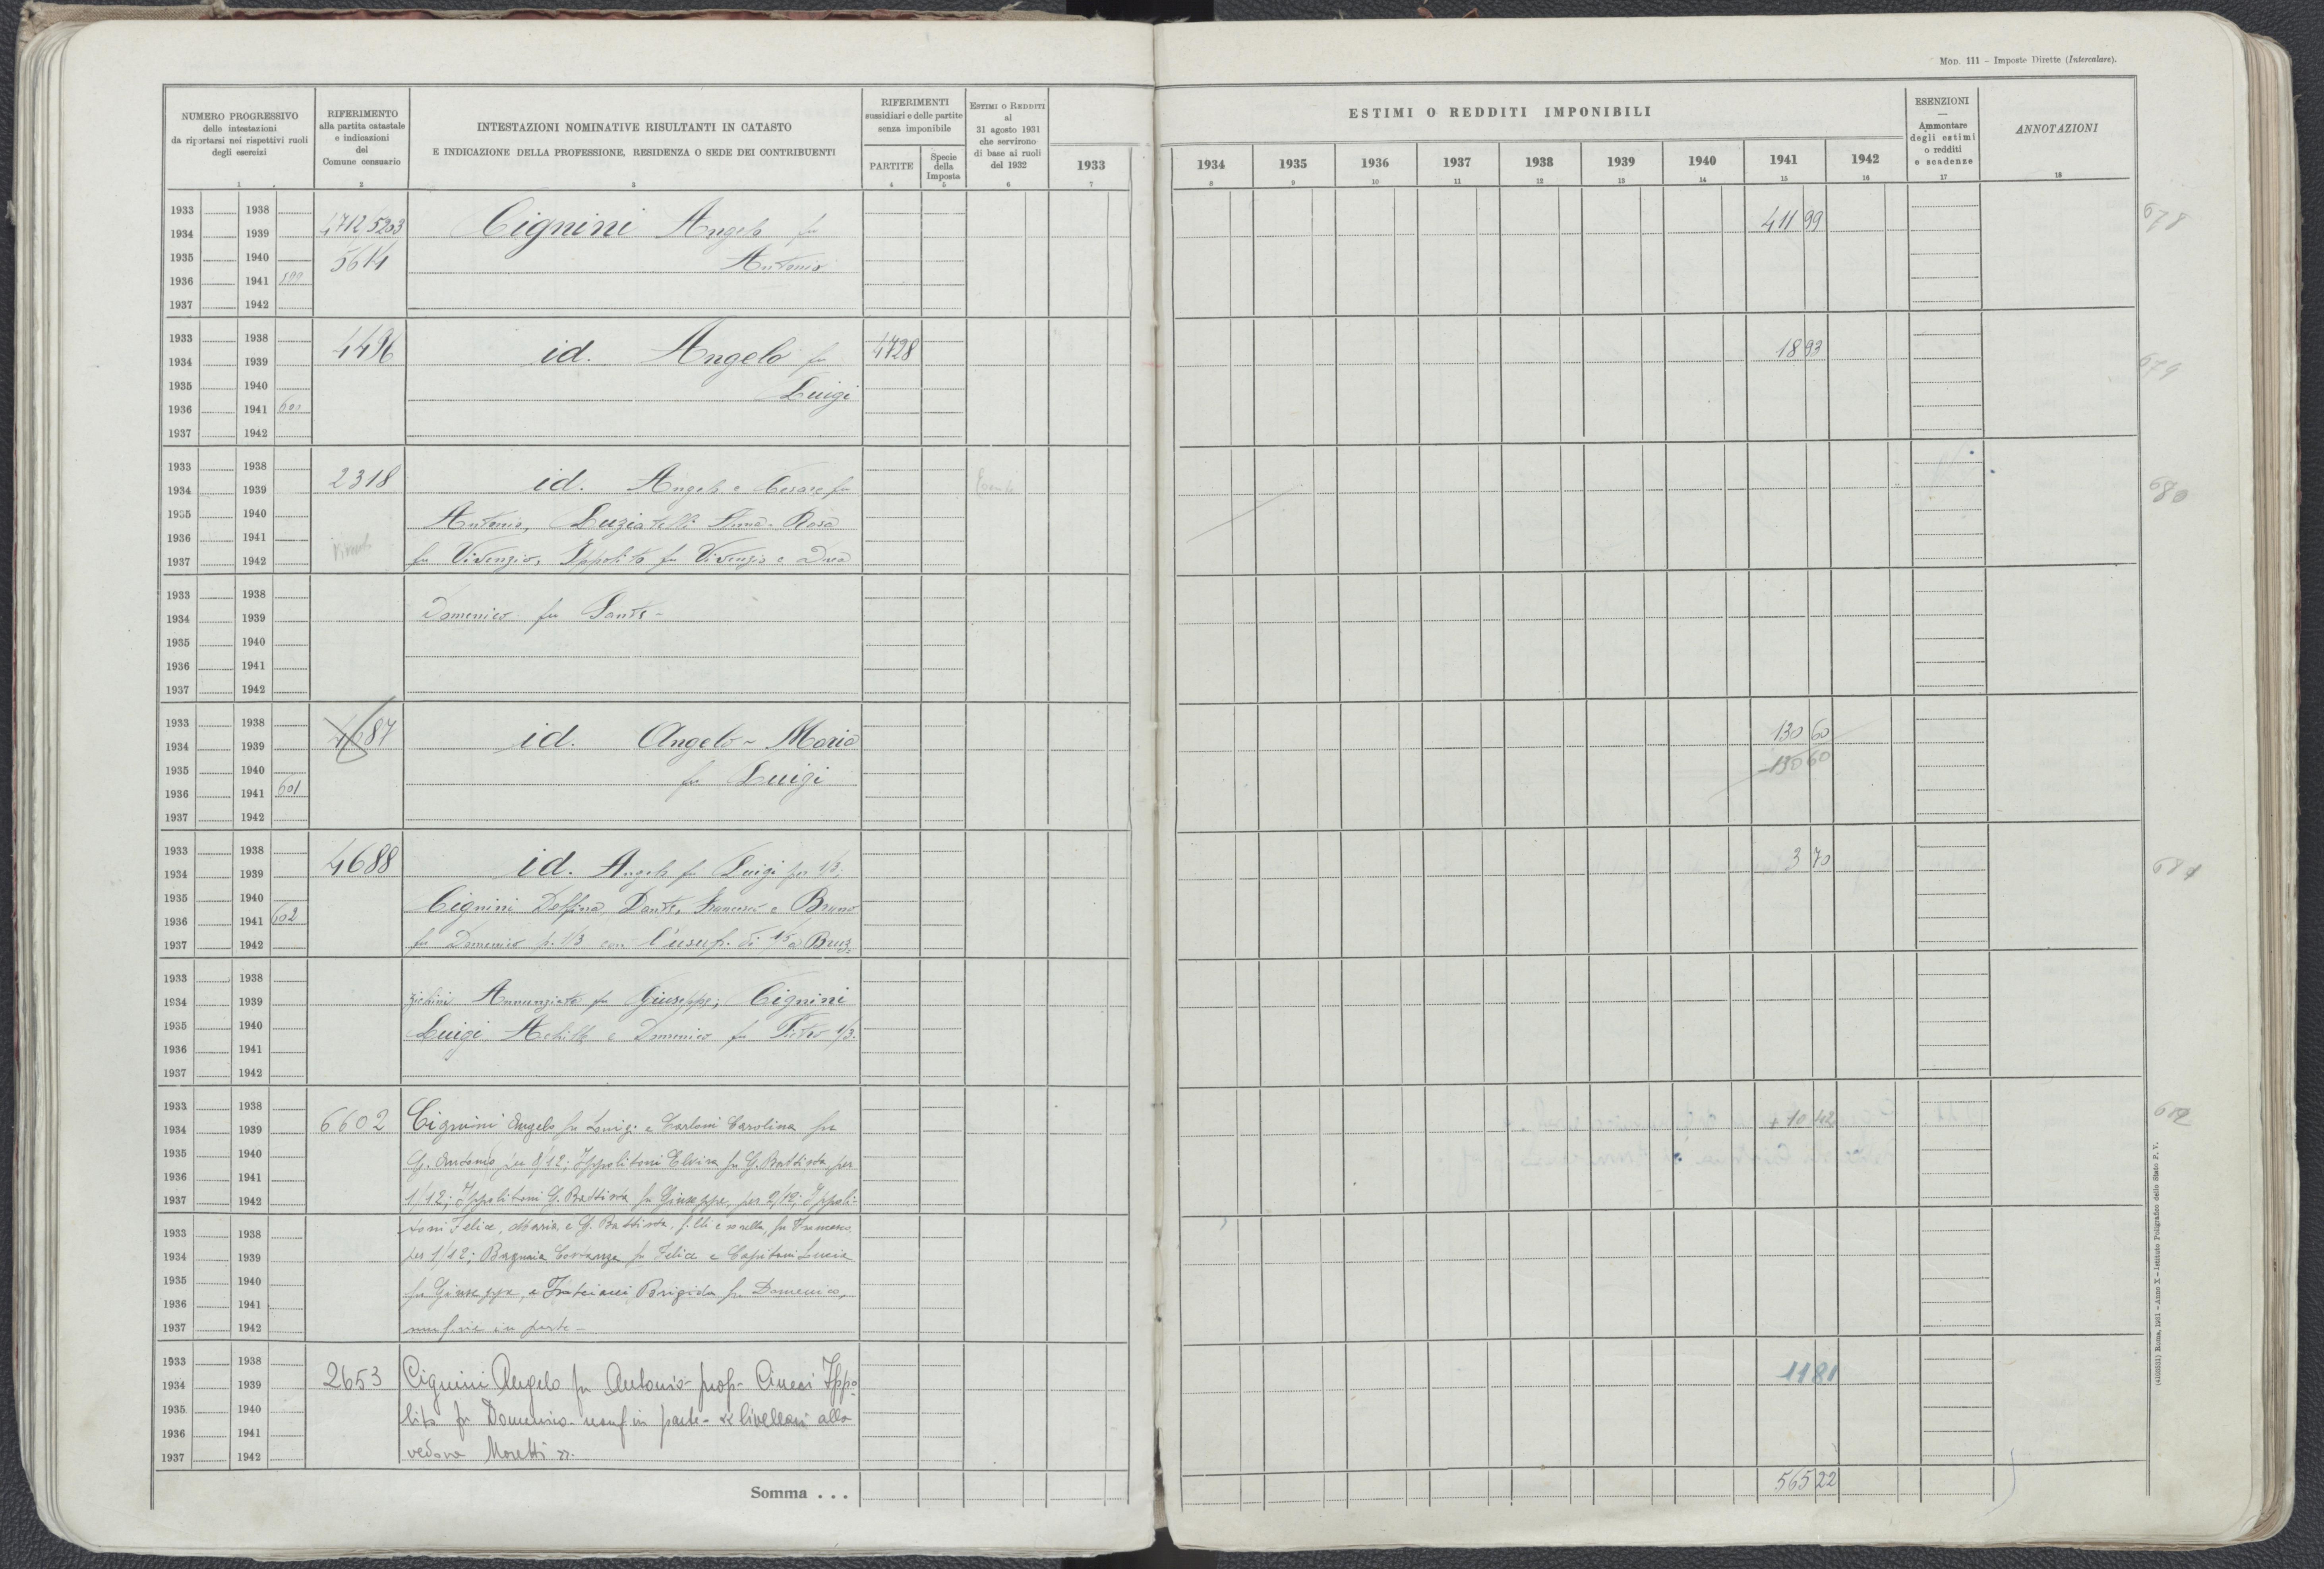 Mod. 111 - Imposte Dirette (Intercalare).
NUMERO PROGRESSIVO
delle intestazioni
da riportarsi nei rispettivi ruoli
degli esercizi
RIFERIMENTO
alla partita catastale
e indicazioni
del
Comune censuario
INTESTAZIONI NOMINATIVE RISULTANTI IN CATASTO
E INDICAZIONE DELLA PROFESSIONE, RESIDENZA O SEDE DEI CONTRIBUENTI
RIFERIMENTI
sussidiari e delle partite
senza imponibile
PARTITE
Specie
della
Imposta
ESTIMI O REDDITI
al
31 agosto 1931
che servirono
di base ai ruoli
del 1932
ESTIMI O REDDITI IMPONIBILI
1933 1934 1935 1936 1937 1938 1939 1940 1941 1942
ESENZIONI
—
Ammontare
degli estimi
o redditi
e scadenze
ANNOTAZIONI
1 2 3 4 5 6 7 8 9 10 11 12 13 14 15 16 17 18
1933 1938
1934 1939 4712 5203 Cignini Angelo fu 411 99 678
1935 1940 5614 Antonio
1936 1941
1937 1942
1933 1938
1934 1939 4496 id. Angelo fu 4728 18 93 679
1935 1940 Luigi
1936 1941 600
1937 1942
1933 1938
1934 1939 2318 id. Angelo e Cesare fu 680
1935 1940 Antonio, Luziatelli Anna-Rosa
1936 1941
1937 1942 fu Vivenzio, Ippolito fu Vivenzio e Duca
1933 1938
1934 1939 Domenico fu Sante -
1935 1940
1936 1941
1937 1942
1933 1938
1934 1939 4687 id. Angelo - Maria 130 60
1935 1940 fu Luigi -130 60
1936 1941 601
1937 1942
1933 1938
1934 1939 4688 id. Angelo fu Luigi per 1/3; 3 70 681
1935 1940 Cignini Delfina, Dante, Francesco e Bruno
1936 1941 602
1937 1942 fu Domenico p. 1/3 con l'usuf. di 1/3 a Bruz-
1933 1938
1934 1939 zichini Annunziata fu Giuseppe; Cignini
1935 1940 Luigi Achille e Domenico fu Pietro 1/3.
1936 1941
1937 1942
1933 1938
1934 1939 6602 Cignini Angelo fu Luigi e Carloni Carolina fu + 10 42 682
1935 1940 G. Antonio per 8/12; Ippolitoni Elvira fu G. Battista per
1936 1941
1937 1942 1/12; Ippolitoni G. Battista fu Giuseppe, per 2/12; Ippoli-
1933 1938 toni Felice, Maria e G. Battista, f.lli e sorella, fu Francesco,
1934 1939 per 1/12; Bagnaia Costanza fu Felice e Capitoni Lucia
1935 1940 fu Giuseppe, e Fratciacci Brigida fu Domenico,
1936 1941
1937 1942 usuf.rie in parte -
1933 1938
1934 1939 2653 Cignini Angelo fu Antonio - prop - Ciucci Ippo- 11 81
1935 1940 lito fu Domenico - usuf. in parte - livellari alla
1936 1941 vedova Moretti
1937 1942
Somma . . . 565 22
(4100351) Roma, 1931 - Anno X - Istituto Poligrafico dello Stato P. V.